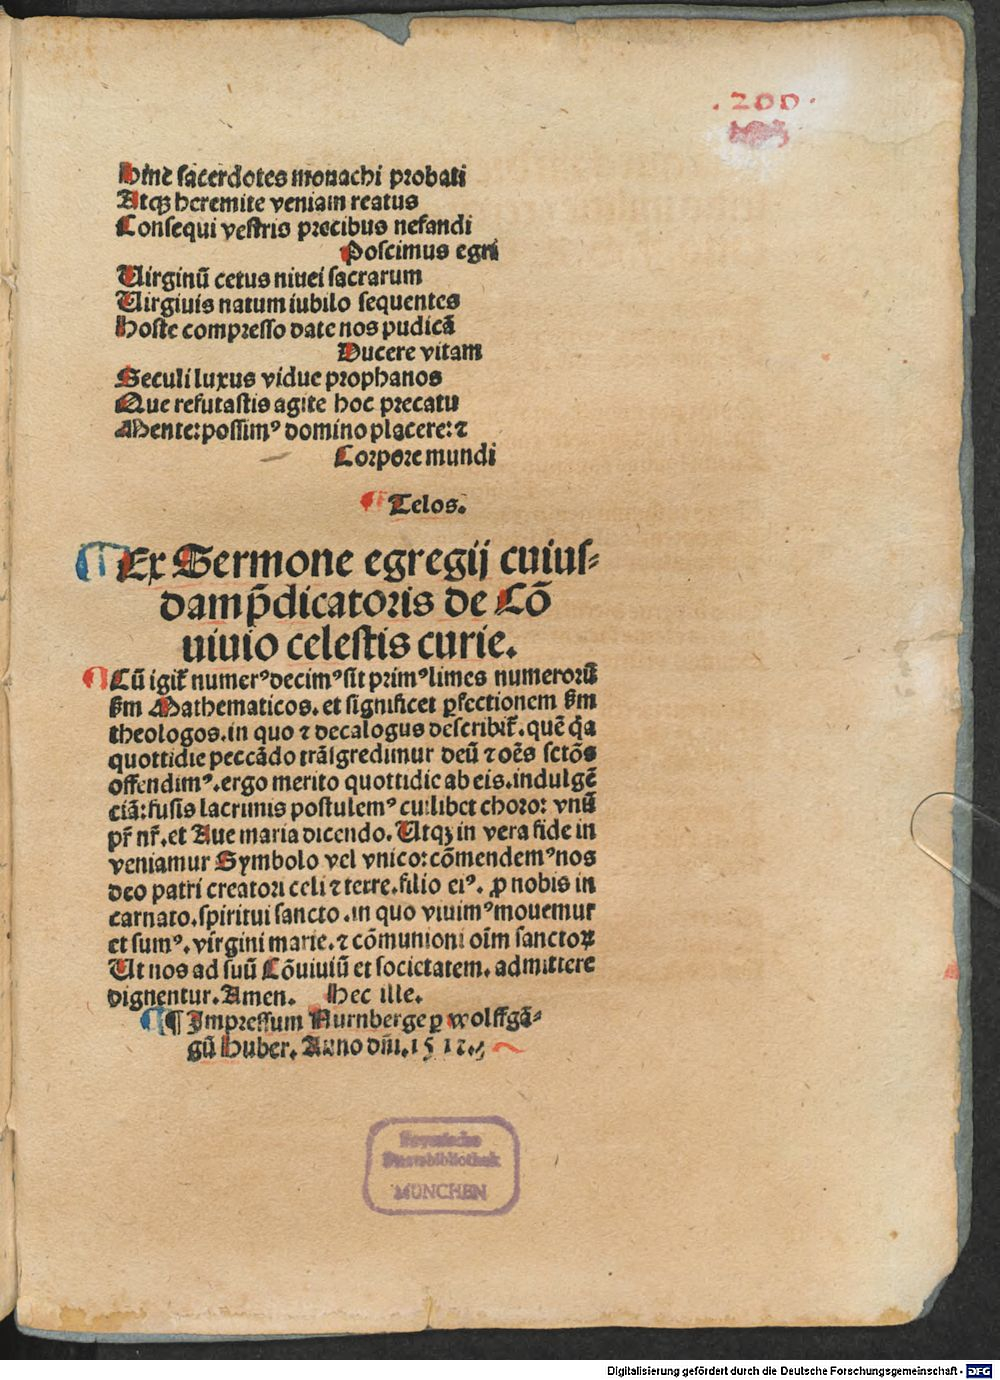 .200.
Hinc sacerdotes monachi probati
Atqꝫ heremite veniam reatus
Consequi vestris precibus nefandi
Poscimus egri
Uirginū cetus niuei sacrarum
Uirginis natum iubilo sequentes
Hoste compresso date nos pudicā
Ducere vitam
Seculi luxus vidue prophanos
Que refutastis agite hoc precatu
Mente: possimꝰ domino placere: ⁊
Corpore mundi
¶ Telos.
¶ Ex Sermone egregij cuius-
dam p̄dicatoris de Cō
uiuio celestis curie.
¶ Cū igit̄ numerꝰ decimꝰ sit primꝰ limes numerorū
ẜm Mathematicos. et significet ꝑfectionem ẜm
theologos. in quo ⁊ decalogus describit̄. quē q̄a
quottidie peccādo trāsgredimur deū ⁊ oēs sctōs
offendimꝰ. ergo merito quottidie ab eis. indulgē
ciā: fusis lacrimis postulemꝰ cuilibet choro: vnū
pr̄ nr̄. et Aue maria dicendo. Utqꝫ in vera fide in
veniamur Symbolo vel vnico: cōmendemꝰ nos
deo patri creatori celi ⁊ terre. filio eiꝰ. ꝓ nobis in
carnato. spiritui sancto. in quo viuimꝰ mouemur
et sumꝰ. virgini marie. ⁊ cōmunioni oīm sanctoꝝ
Ut nos ad suū Cōuiuiū et societatem. admittere
dignentur. Amen. Hec ille.
¶ ¶ Impressum Nurnberge ꝑ wolffgā-
gū Huber. Anno dn̄i. 1512.
Bayerische
Staatsbibliothek
MÜNCHEN
Digitalisierung gefördert durch die Deutsche Forschungsgemeinschaft - DFG